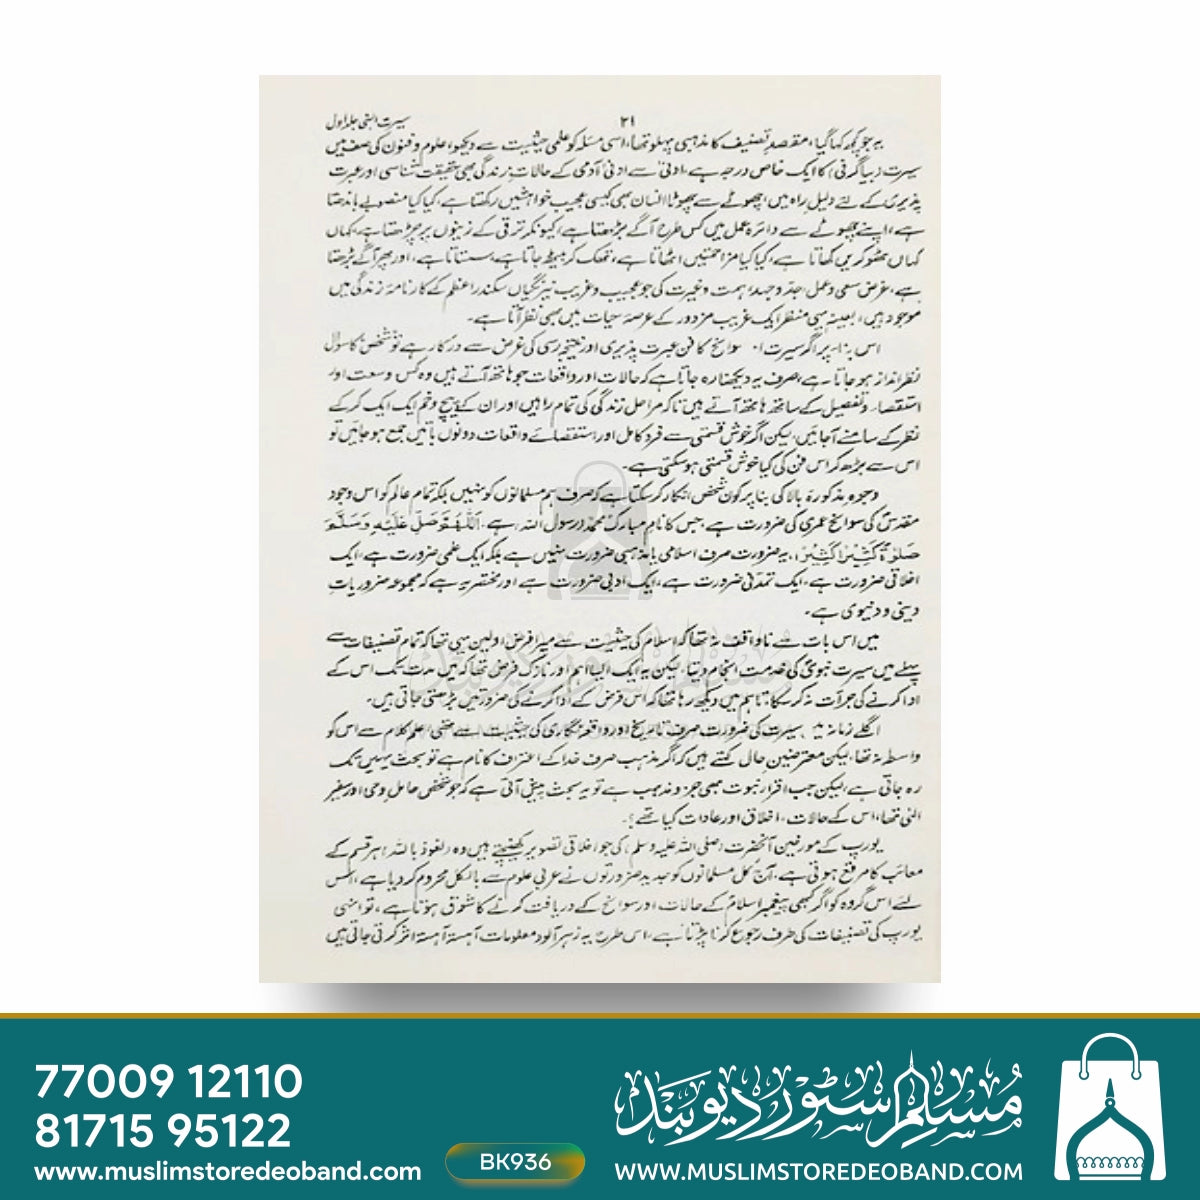 ۲۱
سیرت النبی جلد اول
یہ جو کچھ کہا گیا، مقصدِ تصنیف کا مذہبی پہلو تھا، اسی مسئلہ کو علمی حیثیت سے دیکھو، علوم و فنون کی صف میں
سیرت (بیاگرفی) کا ایک خاص درجہ ہے، ادنیٰ سے ادنیٰ آدمی کے حالاتِ زندگی بھی حقیقت شناسی اور عبرت
پذیری کے لئے دلیلِ راہ ہیں، چھوٹے سے چھوٹا انسان بھی کیسی عجیب خواہشیں رکھتا ہے، کیا کیا منصوبے باندھتا
ہے، اپنے چھوٹے سے دائرۂ عمل میں کس طرح آگے بڑھتا ہے، کیونکر ترقی کے زینوں پر چڑھتا ہے، کہاں
کہاں ٹھوکریں کھاتا ہے، کیا کیا مزاحمتیں اٹھاتا ہے، تھک کر بیٹھ جاتا ہے، سستاتا ہے، اور پھر آگے بڑھتا
ہے، غرض سعی و عمل، جد و جہد، ہمت و غیرت کی جو عجیب و غریب نیرنگیاں سکندر اعظم کے کارنامۂ زندگی میں
موجود ہیں، بعینہ یہی منظر ایک غریب مزدور کے عرصۂ حیات میں بھی نظر آتا ہے۔
اس بنا پر اگر سیرت سوانح کا فن عبرت پذیری اور نتیجہ رسی کی غرض سے درکار ہے تو شخص کا سوال
نظر انداز ہو جاتا ہے، صرف یہ دیکھنا رہ جاتا ہے کہ حالات اور واقعات جو ہاتھ آتے ہیں وہ کس وسعت اور
استقصاء و تفصیل کے ساتھ ہاتھ آتے ہیں تاکہ مراحل زندگی کی تمام راہیں اور ان کے پیچ و خم ایک ایک کر کے
نظر کے سامنے آجائیں، لیکن اگر خوش قسمتی سے فرد کامل اور استقصائے واقعات دونوں باتیں جمع ہو جائیں تو
اس سے بڑھ کر اس فن کی کیا خوش قسمتی ہو سکتی ہے۔
وجوہ مذکورہ بالا کی بنا پر کون شخص انکار کر سکتا ہے کہ صرف ہم مسلمانوں کو نہیں بلکہ تمام عالم کو اس وجود
مقدس کی سوانح عمری کی ضرورت ہے، جس کا نامِ مبارک محمدؐ رسول اللہ ہے، اَللّٰهُمَّ صَلِّ عَلَيْهِ وَسَلِّمْ
صَلوٰةً كَثِيْرًا كَثِيْرًا، یہ ضرورت صرف اسلامی یا مذہبی ضرورت نہیں ہے بلکہ ایک علمی ضرورت ہے، ایک
اخلاقی ضرورت ہے، ایک تمدنی ضرورت ہے، ایک ادبی ضرورت ہے اور مختصر یہ ہے کہ مجموعہ ضروریات
دینی و دنیوی ہے۔
میں اس بات سے ناواقف نہ تھا کہ اسلام کی حیثیت سے میرا فرض اولین یہی تھا کہ تمام تصنیفات سے
پہلے میں سیرت نبویؐ کی خدمت انجام دیتا، لیکن یہ ایک ایسا اہم اور نازک فرض تھا کہ میں مدت تک اس کے
ادا کرنے کی جرأت نہ کر سکا، تاہم میں دیکھ رہا تھا کہ اس فرض کے ادا کرنے کی ضرورتیں بڑھتی جاتی ہیں۔
اگلے زمانہ میں سیرت کی ضرورت صرف تاریخ اور واقعہ نگاری کی حیثیت سے تھی علم کلام سے اس کو
واسطہ نہ تھا، لیکن معترضین حال کہتے ہیں کہ اگر مذہب صرف خدا کے اعتراف کا نام ہے تو بحث یہیں تک
رہ جاتی ہے، لیکن جب اقرار نبوت بھی جزو مذہب ہے تو یہ بحث پیش آتی ہے کہ جو شخص حامل وحی اور سفیر
الٰہی تھا، اس کے حالات، اخلاق اور عادات کیا تھے؟
یورپ کے مورخین آنحضرت (صلی اللہ علیہ وسلم) کی جو اخلاقی تصویر کھینچتے ہیں وہ (نعوذ باللہ) ہر قسم کے
معائب کا مرقع ہوتی ہے، آج کل مسلمانوں کو جدید ضرورتوں نے عربی علوم سے بالکل محروم کر دیا ہے، اس
لئے اس گروہ کو اگر کبھی پیغمبر اسلامؐ کے حالات اور سوانح کے دریافت کرنے کا شوق ہوتا ہے، تو انہی
یورپ کی تصنیفات کی طرف رجوع کرنا پڑتا ہے، اس طرح یہ زہر آلود معلومات آہستہ آہستہ اثر کرتی جاتی ہیں
77009 12110
81715 95122
www.muslimstoredeoband.com
BK936
مسلم سٹور دیوبند
WWW.MUSLIMSTOREDEOBAND.COM